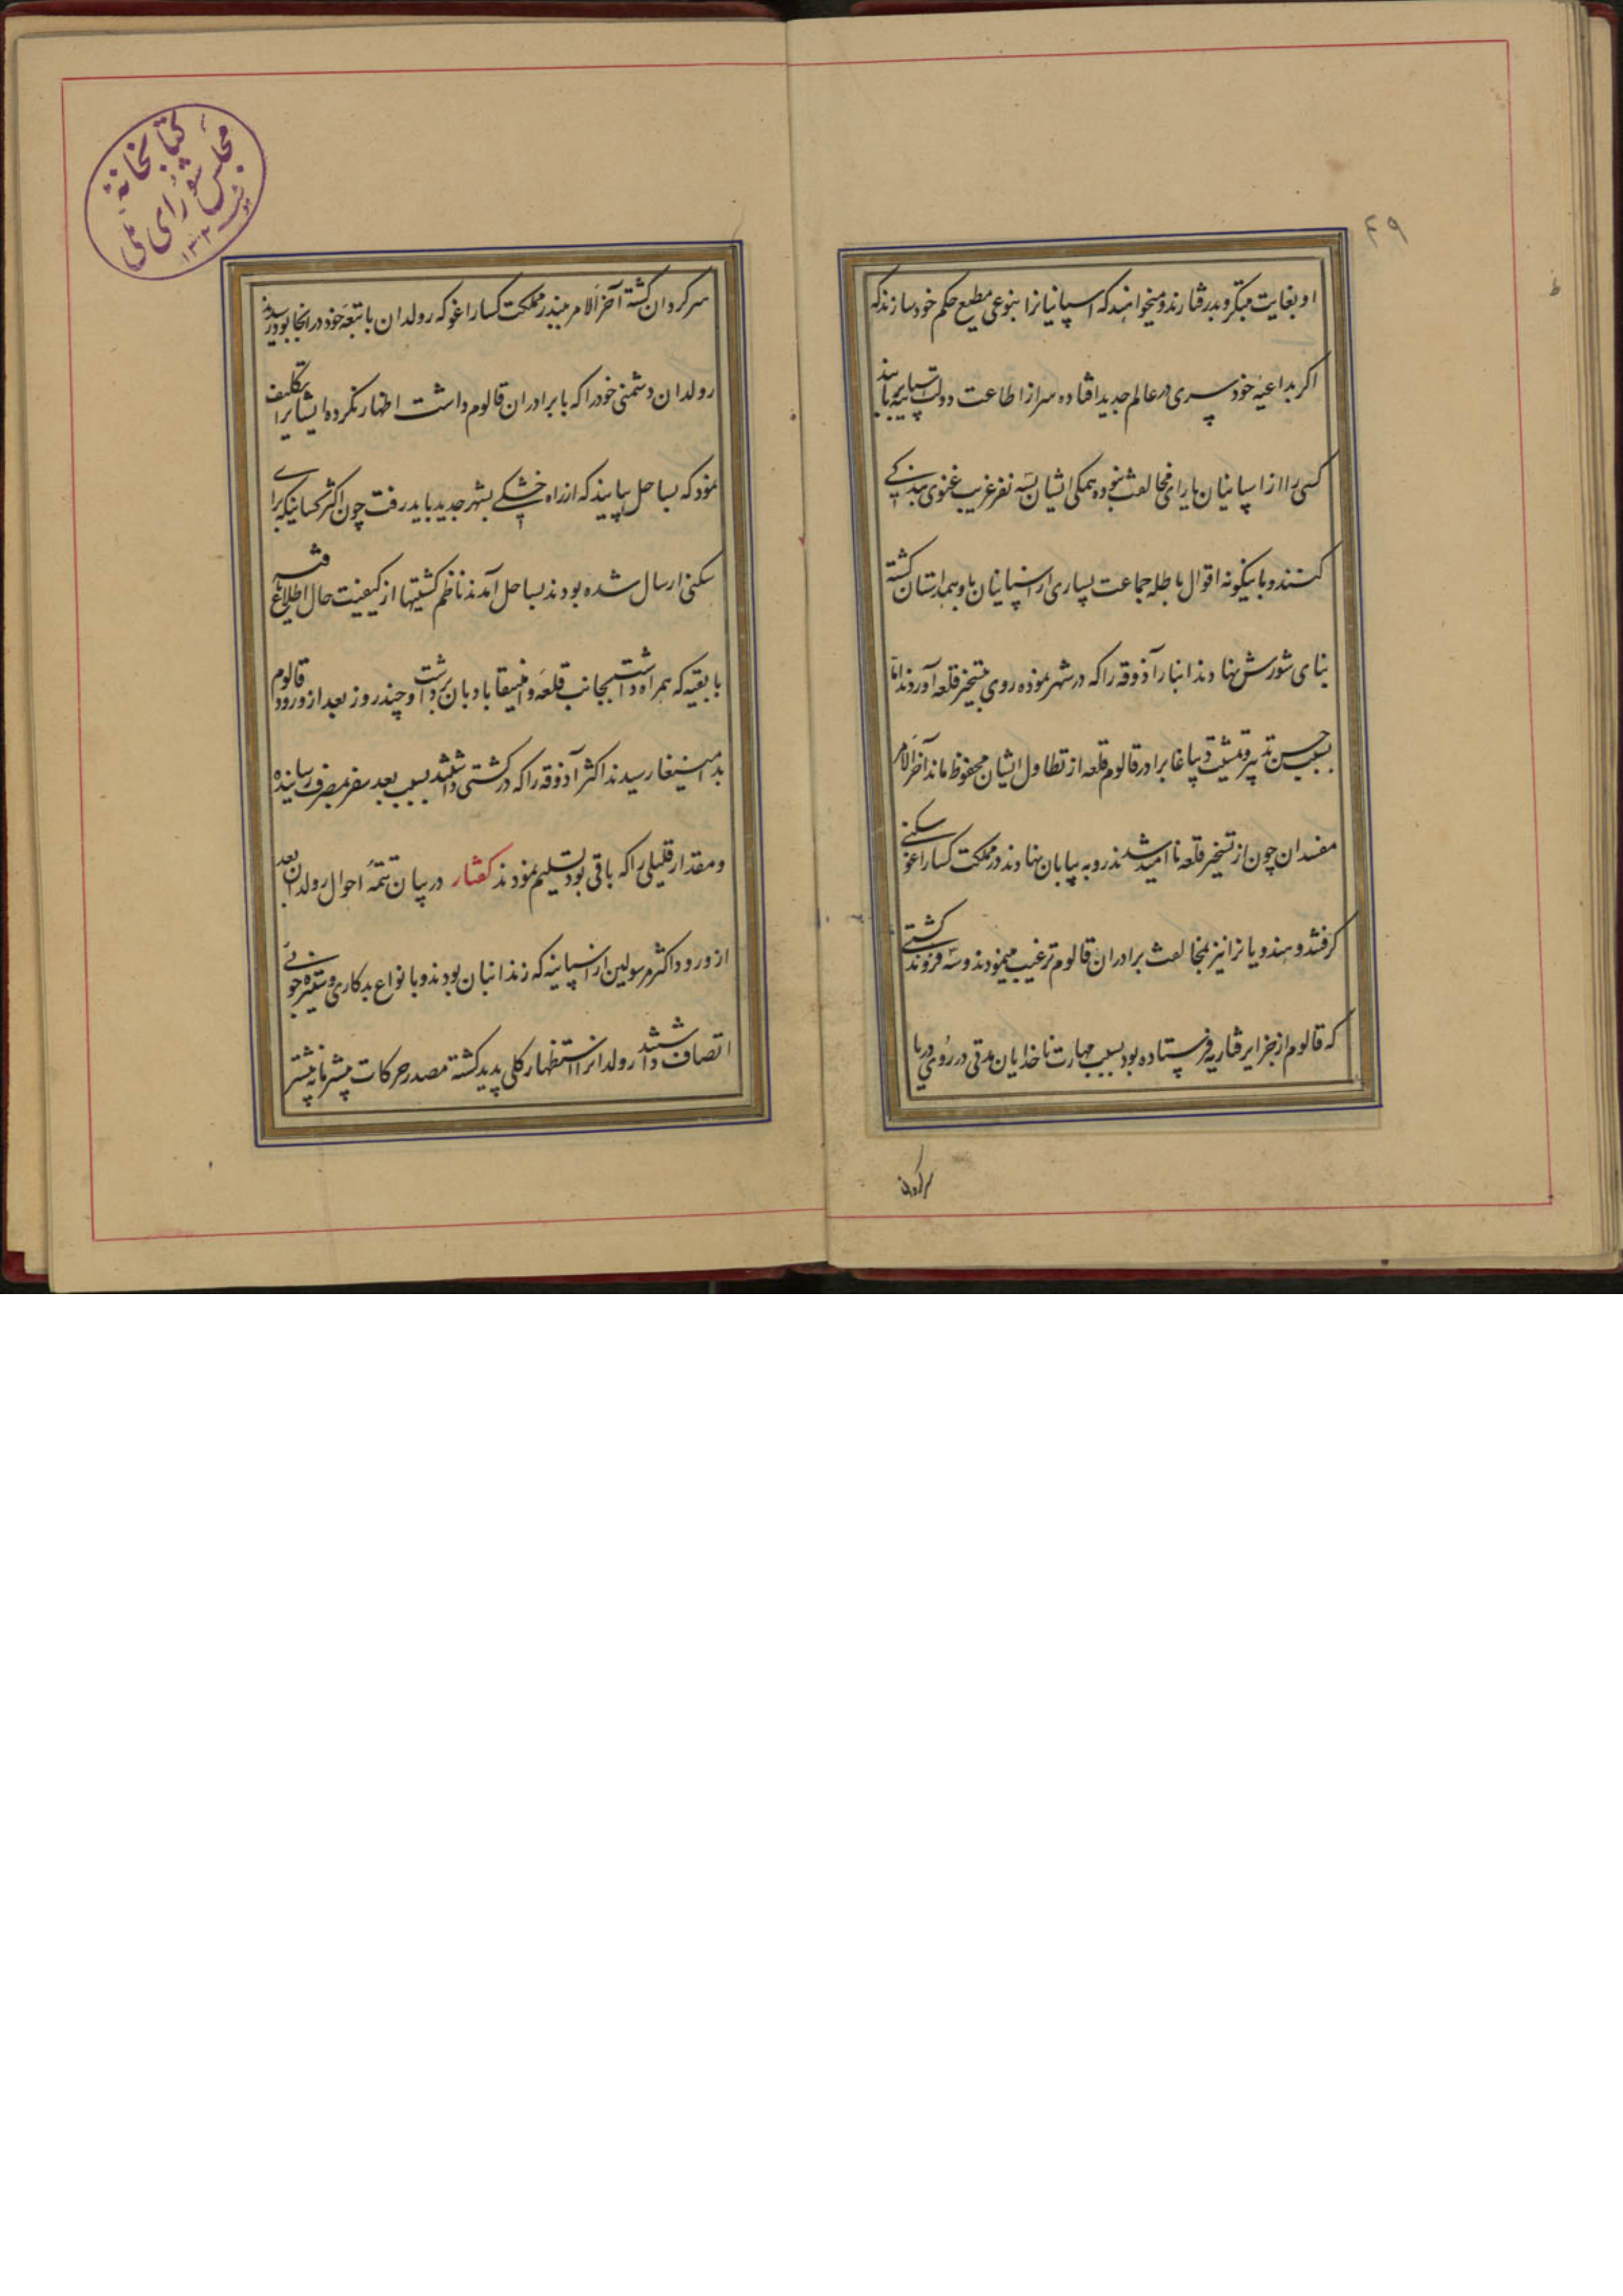 ۴۹
او بغایت متکبر و بدرفتارند و میخواهند که اسپانیانرا بنوعی مطیع حکم خود سازند که
اکر بداعیه خود سری در عالم جدید افتاده سر از اطاعت دولت اسپانیه برتابند
کسی را از اسپانیان یارای مخالفت نبوده همکی ایشان بسه نفر غریب غنوی بندکی
کنند و باینکونه اقوال باطله جماعت بسیاری از اسپانیان باو همداستان کشته
بنای شورش نهادند انبار آذوقه را که در شهر نموده روی بتسخیر قلعه آوردند اما
بسبب حسن تدبیر و تمشیت دیاغا برادر قالوم قلعه از تطاول ایشان محفوظ ماند آخر الامر
مفسدان چون از تسخیر قلعه ناامید شدند رو به بیابان نهادند در مملکت کساراغو سکنی
کرفتند و هندویانرا نیز بمخالفت برادران قالوم ترغیب مینمودند و سه فروند کشتی
که قالوم از جزایر قناریه فرستاده بود بسبب مهارت ناخدایان مدتی در روی دریا
سرکردان
سرکردان کشته آخر الامر ببندر مملکت کساراغو که رولدان با تبعه خود در انجا بود رسیدند
رولدان دشمنی خود را که با برادران قالوم داشت اظهار نکرده ایشانرا تکلیف
نمود که بساحل بیایند که از راه خشکی بشهر جدید باید رفت چون اکثر کسانیکه برای
سکنی ارسال شده بودند بساحل آمدند ناظم کشتیها از کیفیت حال اطلاع یافته
با بقیه که همراه داشت بجانب قلعه دامنیقا بادبان برداشت و چند روز بعد از ورود قالوم
بدامنیغا رسیدند اکثر آذوقه را که در کشتی داشتند بسبب بعد سفر بمصرف رسانیده
و مقدار قلیلی را که باقی بود تسلیم نمودند کفتار در بیان تتمه احوال رولدان بعد
از ورود اکثر مرسولین از اسپانیه که زندانبان بودند و با نواع بدکاری و ستیزه جوئی
اتصاف داشتند رولدانرا استظهار کلی پدید کشته مصدر حرکات بیشرمانه بیشتر
کتابخانه
مجلس شورای ملی